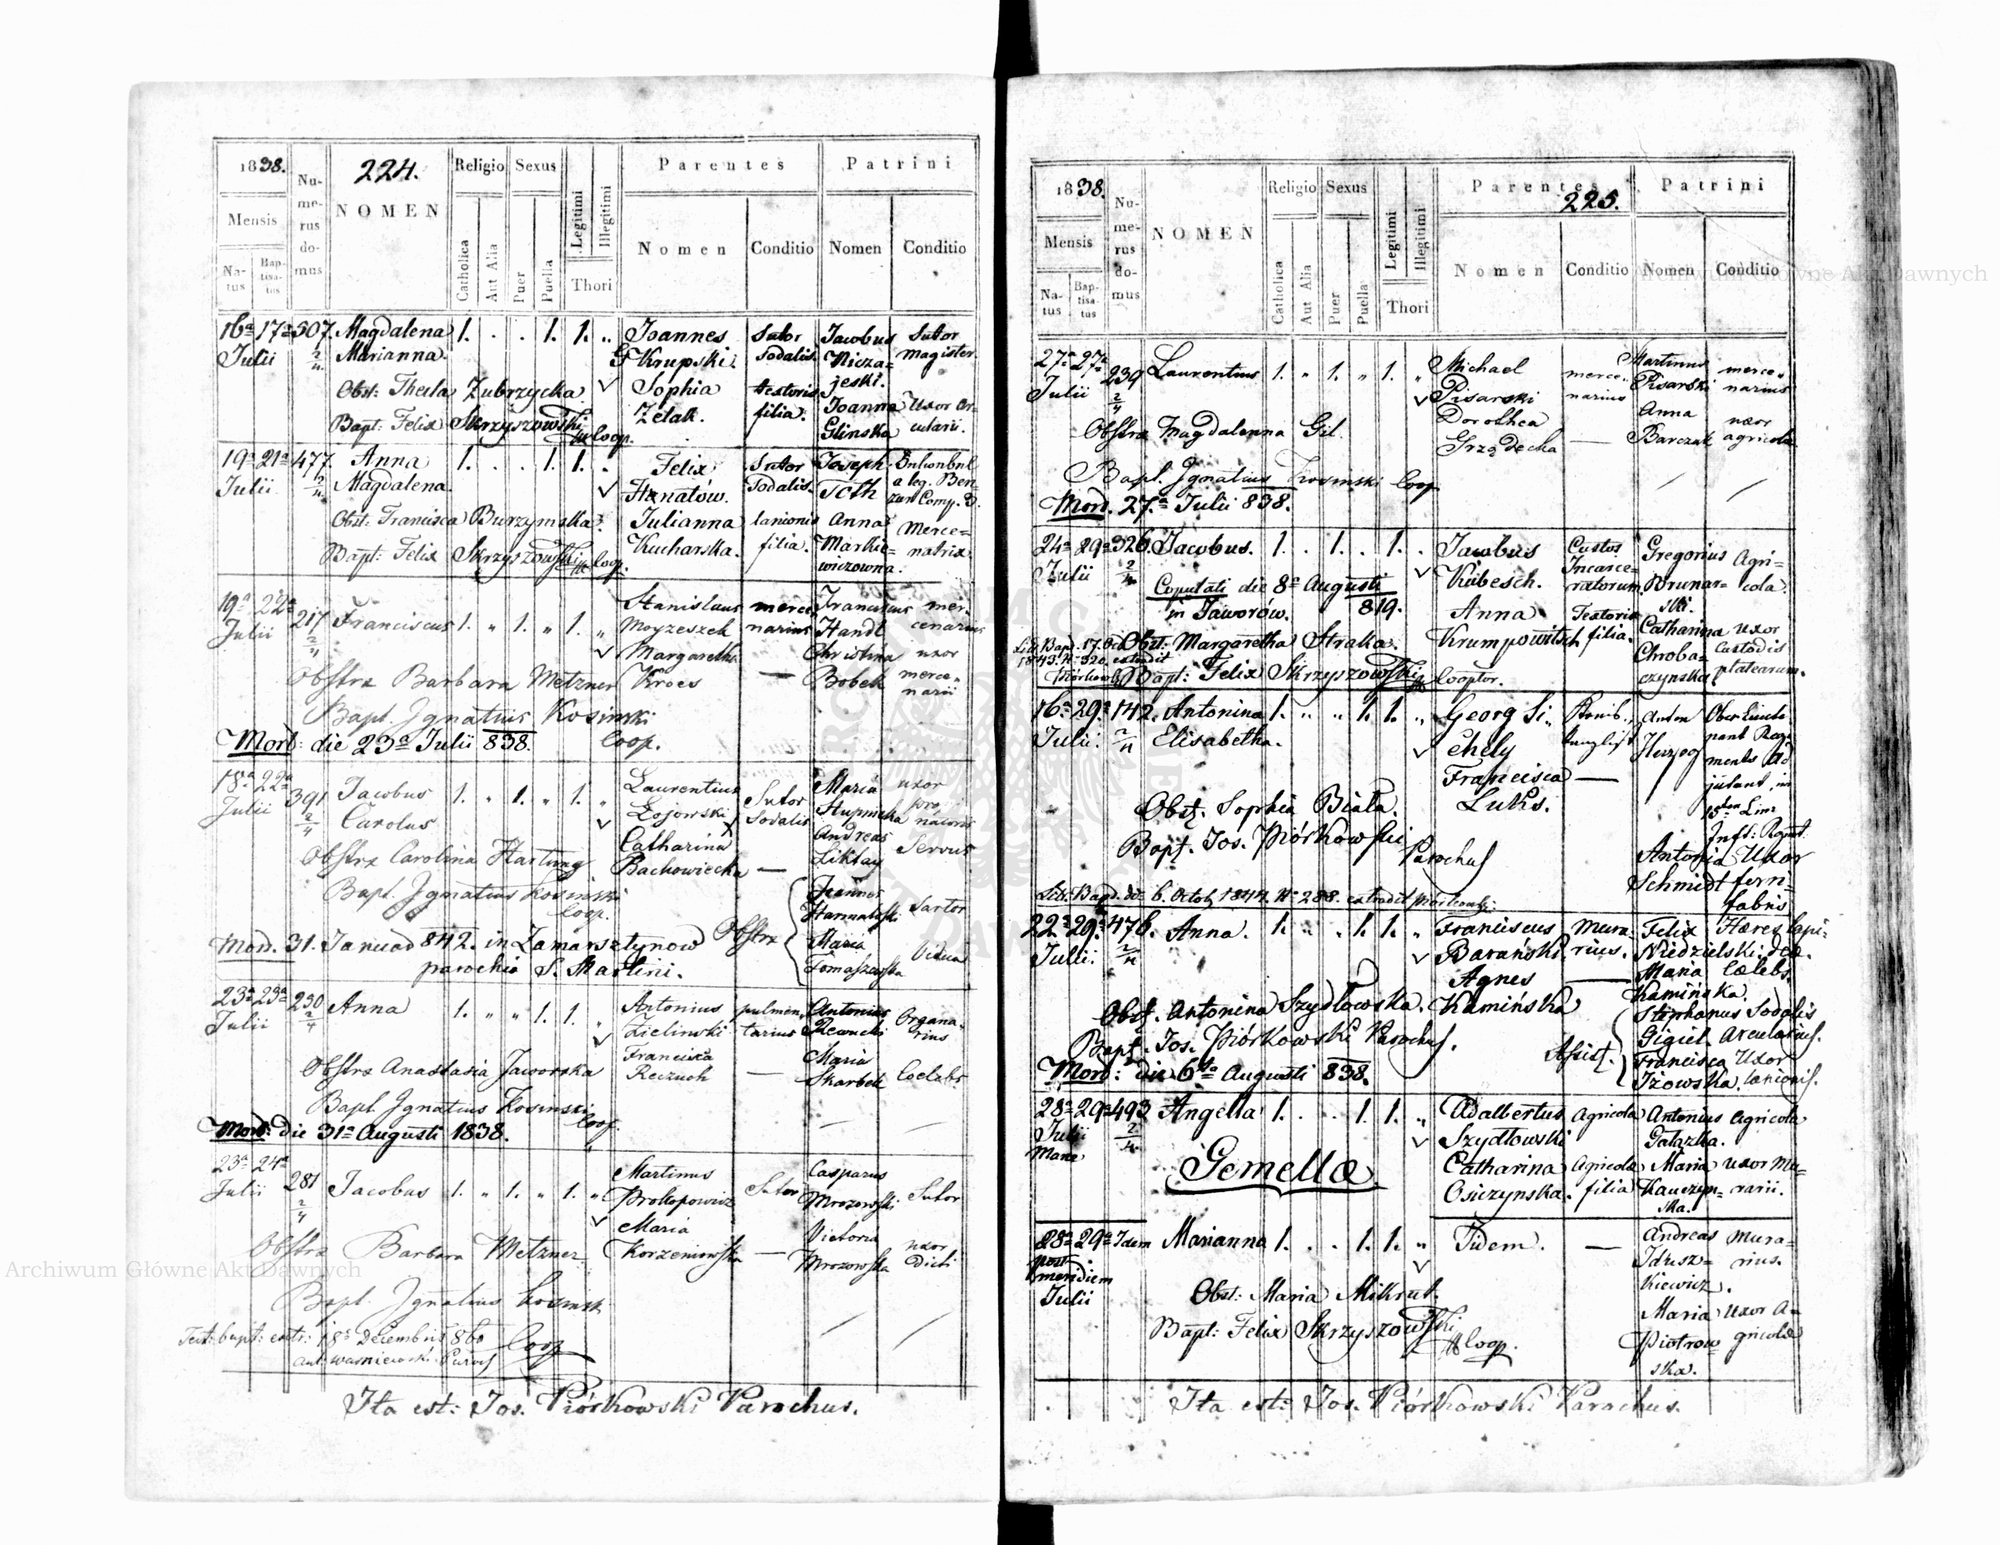 1838.
224.
Numerus domus
NOMEN
Religio
Sexus
Legitimi
Illegitimi
Parentes
Patrini
Mensis
Natus
Baptisatus
Catholica
Aut Alia
Puer
Puella
Thori
Nomen
Conditio
Nomen
Conditio
16a 17a 307. Magdalena 1. . . 1. 1. „ Joannes Sutor Jacobus Sutor
Julii 2/4 Marianna Krupski. Sodalis. magister.
Obst: Thecla Zubrzycka Sophia textoris jeski.
Zelak. filia. Joanna Uxor ar-
Bapt: Felix Skrzyszowski Coop. Glinska cularii.
19a 21a 477. Anna 1. . . 1. 1. . Felix Sutor Joseph
Julii 2/4 Magdalena. Sodalis. Toth
Obst: Francisca Burzymska. Julianna lanionis Anna Merce-
Bapt: Felix Skrzyszowski Coop. Kucharska. filia. Markie- natrix
wiczowna.
19a 22a 217 Franciscus 1. „ 1. „ 1. „ Stanislaus merce Franciscus mer-
Julii 2/4 Moyzeszek narius Handl cenarius
Margaretha Christina uxor
Obstrx Barbara Metzner Kroes — Bobek merce-
narii
Bapt. Ignatius Kosinski
Mort: die 23a Julii 838. Coop.
18a 22a 391 Jacobus 1. „ 1. „ 1. „ Laurentius Sutor Maria uxor
Julii 2/4 Carolus Łojowski Sodalis
Catharina Andreas Servus
Obstrx Carolina Hartung Bachowiecka — Liktay
Bapt. Ignatius Kosinski
Coop.
Joannes
Sartor
Mort. 31. Januar 842. in Zamarsztynow Obstrx Maria Vidua
parochia S. Martini. Tomaszewska
23a 23a 230 Anna 1. „ „ 1. 1. „ Antonius pulmen- Antonius Organa-
Julii 2/4 Zielinski tarius rius
Francisca Maria
Obstrx Anastasia Jaworska Reczuch — Skarbek Coelebs
Bapt. Ignatius Kosinski
Coop.
Mort: die 31a Augusti 1838.
23a 24a 281 Jacobus 1. „ 1. „ 1. „ Martinus Sutor Casparus Sutor
Julii 2/4 Prokopowicz Mrozowski
Maria Victoria uxor
Obstrx Barbara Metzner Korzeniowska — Mrozowska dicti
Bapt. Ignatius Kosinski
Coop
Test: bapt: extr: 18a Decembris 860
Ita est: Jos. Piórkowski Parochus.
1838.
225.
Numerus domus
NOMEN
Religio
Sexus
Legitimi
Illegitimi
Parentes
Patrini
Mensis
Natus
Baptisatus
Catholica
Aut Alia
Puer
Puella
Thori
Nomen
Conditio
Nomen
Conditio
27a 27a 239 Laurentius 1. „ 1. „ 1. „ Michael merce- Martinus merce-
Julii 2/4 Pisarski narius Pisarski narius
Dorothea Anna uxor
Obstrx Magdalenna Gil Grządecka — Barczak agricolae
Bapt. Ignatius Kosinski Coop
Mort. 27a Julii 838.
24a 29a 326. Jacobus. 1. . 1. . 1. . Jacobus Custos Gregorius Agri-
Julii 2/4 Kübesch. Incarce- Brunar- cola.
Copulati die 8a Augusti ratorum ski.
819. in Jaworów. Anna Textoris Catharina uxor
Krumpowitsch filia. Chroba- Custodis
czynska. platearum.
Obst: Margaretha Straka.
Bapt: Felix Skrzyszowski Cooptor.
16a 29a 142. Antonina 1. „ „ 1. 1. „ Georg Si- Anton Ober Lieute
Julii. 2/4 Elisabetha. chely Herzog nant Regi
Francisca — ments Ad
Luks. jutant, im
Obst. Sophia Biała. 15ten Lin
Inft: Rgmt.
Bapt. Jos. Piórkowski Parochus Antonia Uxor
Schmidt ferri-
fabris
Lib. Bapt. de 6. Octob. 1844. No 288. extradit Piórkowski
22a 29a 476. Anna. 1. „ „ 1. 1. „ Franciscus Mura- Felix
Julii. 2/4 Barański rius. Niedzielski.
Agnes — Maria Caelebs.
Obst. Antonina Szydłowska. Kamińska Kamińska.
Stephanus Sodalis
Bapt. Jos. Piórkowski Parochus. Assist. Gigiel Arcularius.
Francisca Uxor
Mort: die 6ta Augusti 838. lanionis.
28a 29a 493 Angella 1. . . 1. 1. „ Adalbertus Agricola Antonius Agricola
Julii 2/4 Szydłowski Gałązka.
Mane Gemellæ Catharina Agricolae Maria uxor Mu-
Osiczynska. filia Kauczyn- rarii.
ska.
28a 29a Idem Marianna 1. . . 1. 1. „ Iidem. — Andreas Mura-
post meridiem Idusz- rius.
Julii kiewicz.
Obst: Maria Mikrut. Maria Uxor A-
Bapt: Felix Skrzyszowski Coop. Piotrow- gricolae
ska.
Ita est: Jos. Piórkowski Parochus.
Archiwum Główne Akt Dawnych
Archiwum Główne Akt Dawnych